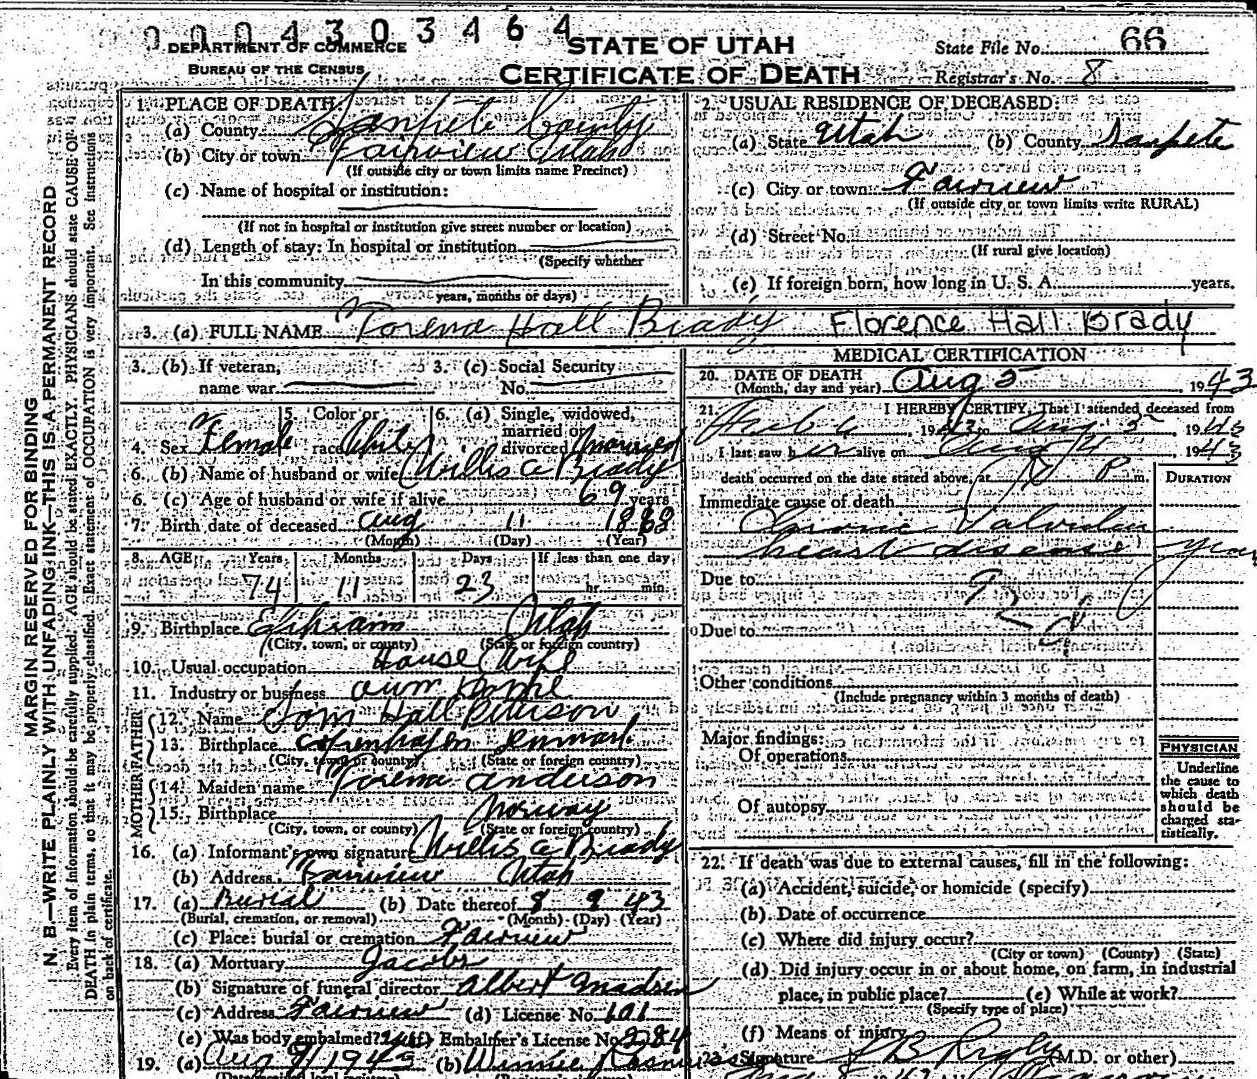 0004303464
DEPARTMENT OF COMMERCE
BUREAU OF THE CENSUS
STATE OF UTAH
CERTIFICATE OF DEATH
State File No. 66
Registrar's No. 8
MARGIN RESERVED FOR BINDING
N. B.—WRITE PLAINLY WITH UNFADING INK—THIS IS A PERMANENT RECORD
Every item of information should be carefully supplied. AGE should be stated EXACTLY. PHYSICIANS should state CAUSE OF
DEATH in plain terms, so that it may be properly classified. Exact statement of OCCUPATION is very important. See instructions
on back of certificate.
1. PLACE OF DEATH:
(a) County Sanpete County
(b) City or town Fairview Utah
(If outside city or town limits name Precinct)
(c) Name of hospital or institution:
(If not in hospital or institution give street number or location)
(d) Length of stay: In hospital or institution
(Specify whether
In this community
years, months or days)
2. USUAL RESIDENCE OF DECEASED:
(a) State Utah (b) County Sanpete
(c) City or town: Fairview
(If outside city or town limits write RURAL)
(d) Street No.
(If rural give location)
(e) If foreign born, how long in U. S. A. years.
3. (a) FULL NAME Hall Brady Florence Hall Brady
3. (b) If veteran,
name war
3. (c) Social Security
No.
4. Sex Female
5. Color or
race White
6. (a) Single, widowed,
married or
divorced married
6. (b) Name of husband or wife Willis A Brady
6. (c) Age of husband or wife if alive 69 years
7. Birth date of deceased Aug 11 1868
(Month) (Day) (Year)
8. AGE Years Months Days If less than one day
74 11 23 hr. min.
9. Birthplace Ephraim Utah
(City, town, or county) (State or foreign country)
10. Usual occupation House Wife
11. Industry or business own home
FATHER
12. Name Tom Hall
13. Birthplace Copenhagen
(City, town or county) (State or foreign country)
MOTHER
14. Maiden name Anderson
15. Birthplace Norway
(City, town, or county) (State or foreign country)
16. (a) Informant's own signature Willis A Brady
(b) Address Fairview Utah
17. (a) Burial (b) Date thereof 8 9 43
(Burial, cremation, or removal) (Month) (Day) (Year)
(c) Place: burial or cremation Fairview
18. (a) Mortuary Jacobs
(b) Signature of funeral director Albert Madsen
(c) Address Fairview (d) License No. 101
(e) Was body embalmed? Embalmer's License No. 2284
19. (a) Aug 9/1943 (b) Winnie
MEDICAL CERTIFICATION
20. DATE OF DEATH
(Month, day and year) Aug 5 1943
21. I HEREBY CERTIFY, That I attended deceased from
Feb 6, 1943 to Aug 5 1943
I last saw her alive on Aug 4 1943
death occurred on the date stated above, at P m.
DURATION
Immediate cause of death
Chronic Valvular
heart disease
Due to
Due to
Other conditions
(Include pregnancy within 3 months of death)
Major findings:
Of operations
Of autopsy
PHYSICIAN
Underline
the cause to
which death
should be
charged sta-
tistically.
22. If death was due to external causes, fill in the following:
(a) Accident, suicide, or homicide (specify)
(b) Date of occurrence
(c) Where did injury occur?
(City or town) (County) (State)
(d) Did injury occur in or about home, on farm, in industrial
place, in public place? (e) While at work?
(Specify type of place)
(f) Means of injury
23. Signature (M.D. or other)